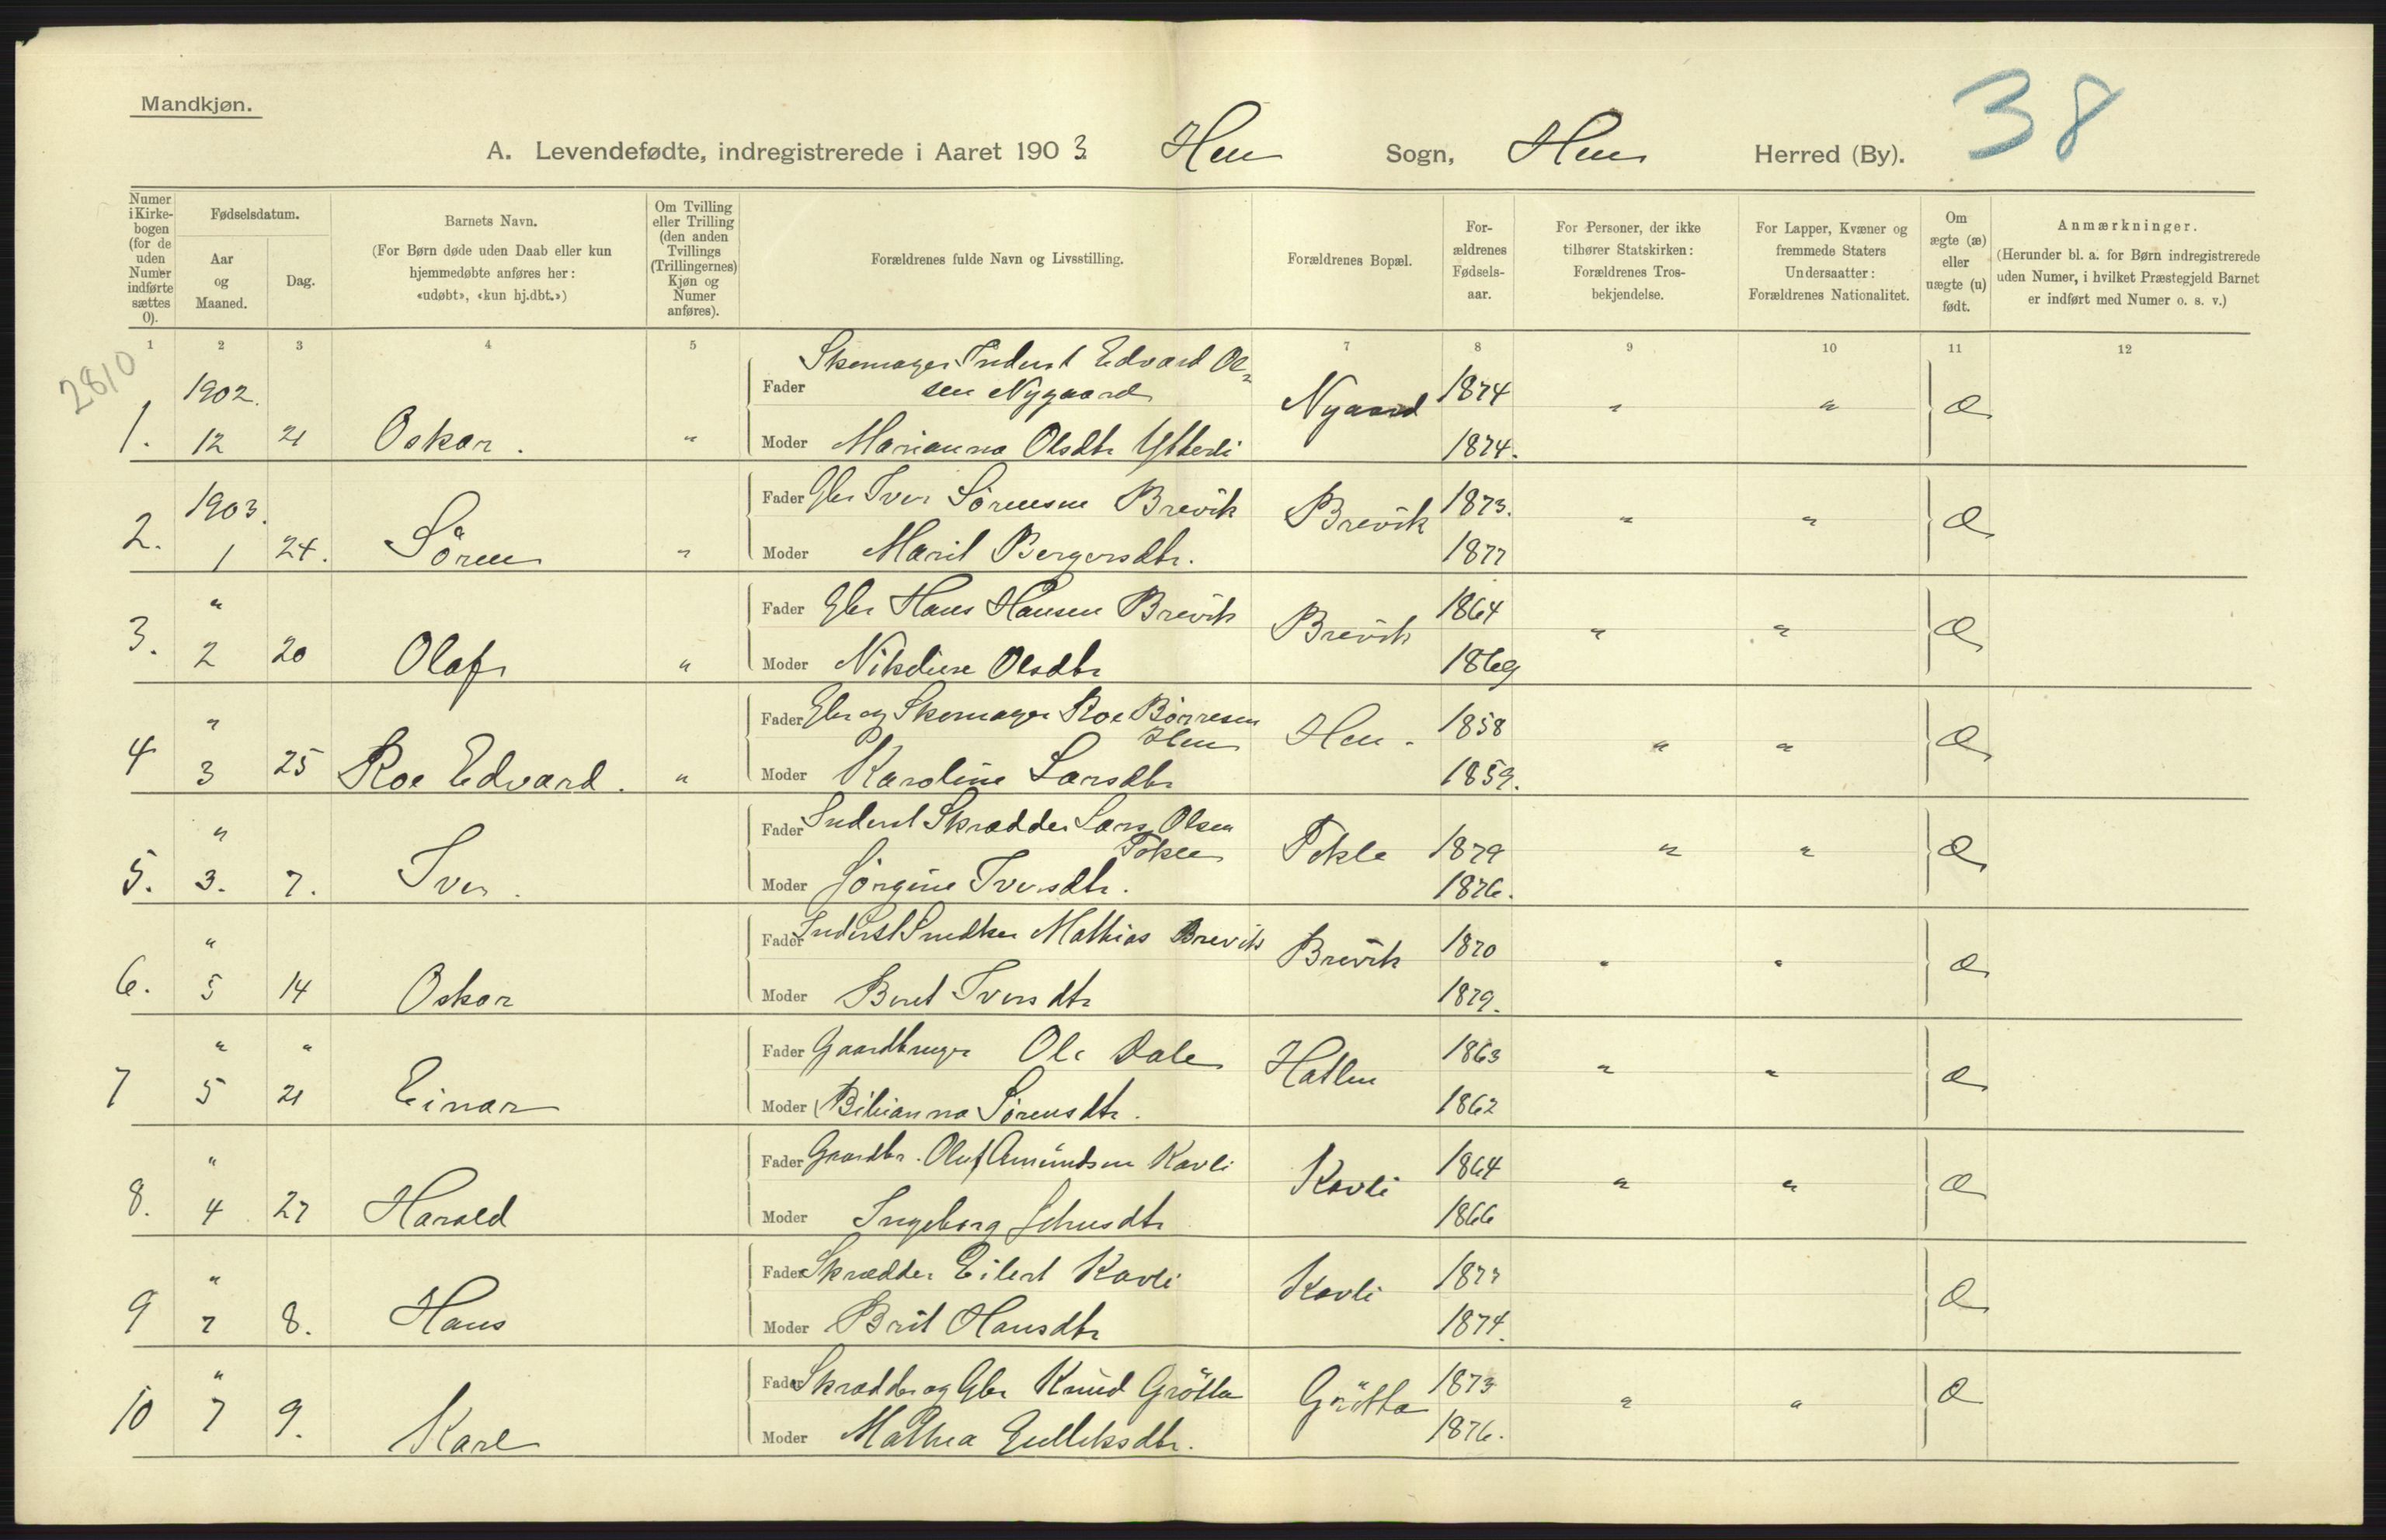 Mandkjøn.
38
A. Levendefødte, indregistrerede i Aaret 1903 Hen Sogn, Hen Herred (By).
Numer i Kirkebogen (for de uden Numer indførte sættes 0).
Fødselsdatum.
Aar og Maaned.
Dag.
Barnets Navn.
(For Børn døde uden Daab eller kun hjemmedøbte anføres her: «udøbt», «kun hj.dbt.»)
Om Tvilling eller Trilling (den anden Tvillings (Trillingernes) Kjøn og Numer anføres).
Forældrenes fulde Navn og Livsstilling.
Forældrenes Bopæl.
Forældrenes Fødselsaar.
For Personer, der ikke tilhører Statskirken: Forældrenes Trosbekjendelse.
For Lapper, Kvæner og fremmede Staters Undersaatter: Forældrenes Nationalitet.
Om ægte (æ) eller uægte (u) født.
Anmærkninger.
(Herunder bl. a. for Børn indregistrerede uden Numer, i hvilket Præstegjeld Barnet er indført med Numer o. s. v.)
1 2 3 4 5 7 8 9 10 11 12
2810
1902. Fader Skomager Inderst Edvard Ol=
sen Nygaard Nyaard 1874 " " æ
1. 12 21 Oskar. " Moder Marianna Olsdtr Ytterli 1874.
1903. Fader Gbr Iver Sörensen Brevik Brevik 1873. " " æ
2. 1 24. Sören " Moder Marit Bergersdtr. 1877
" Fader Gbr Hans Hansen Brevik Brevik 1864 " " æ
3. 2 20 Olaf " Moder Nikoline Olsdtr 1869
" Fader Gbr og Skomager Roe Börresen
Hen Hen. 1858 " " æ
4 3 25 Roe Edvard. " Moder Karoline Larsdtr 1859.
" Fader Inderst Skrædder Lars Olsen
Tokle Tokle 1879 " " æ
5. 3. 7. Iver. Moder Jörgine Iversdtr. 1876.
" Fader Inderst Snedker Mathias Brevik Brevik 1870 " " æ
6. 5 14 Oskar Moder Beret Iversdtr 1879.
" " Fader Gaardbruger Ole Dale Hatlen 1863 " " æ
7 5 21 Einar Moder Bilianna Sörensdtr. 1862
" Fader Gaardbr. Oluf Amundsen Kavli Kavli 1864 " " æ
8. 4 27 Harald Moder Ingeborg Johnsdtr 1866
" Fader Skrædder Eilert Kavli Kavli 1877 æ
9 7 8. Hans Moder Brit Hansdtr 1874.
" Fader Skrædder og Gbr Knud Grötta Grötta 1873 " " æ
10 7 9. Karl Moder Mathea Gulleksdtr. 1876.